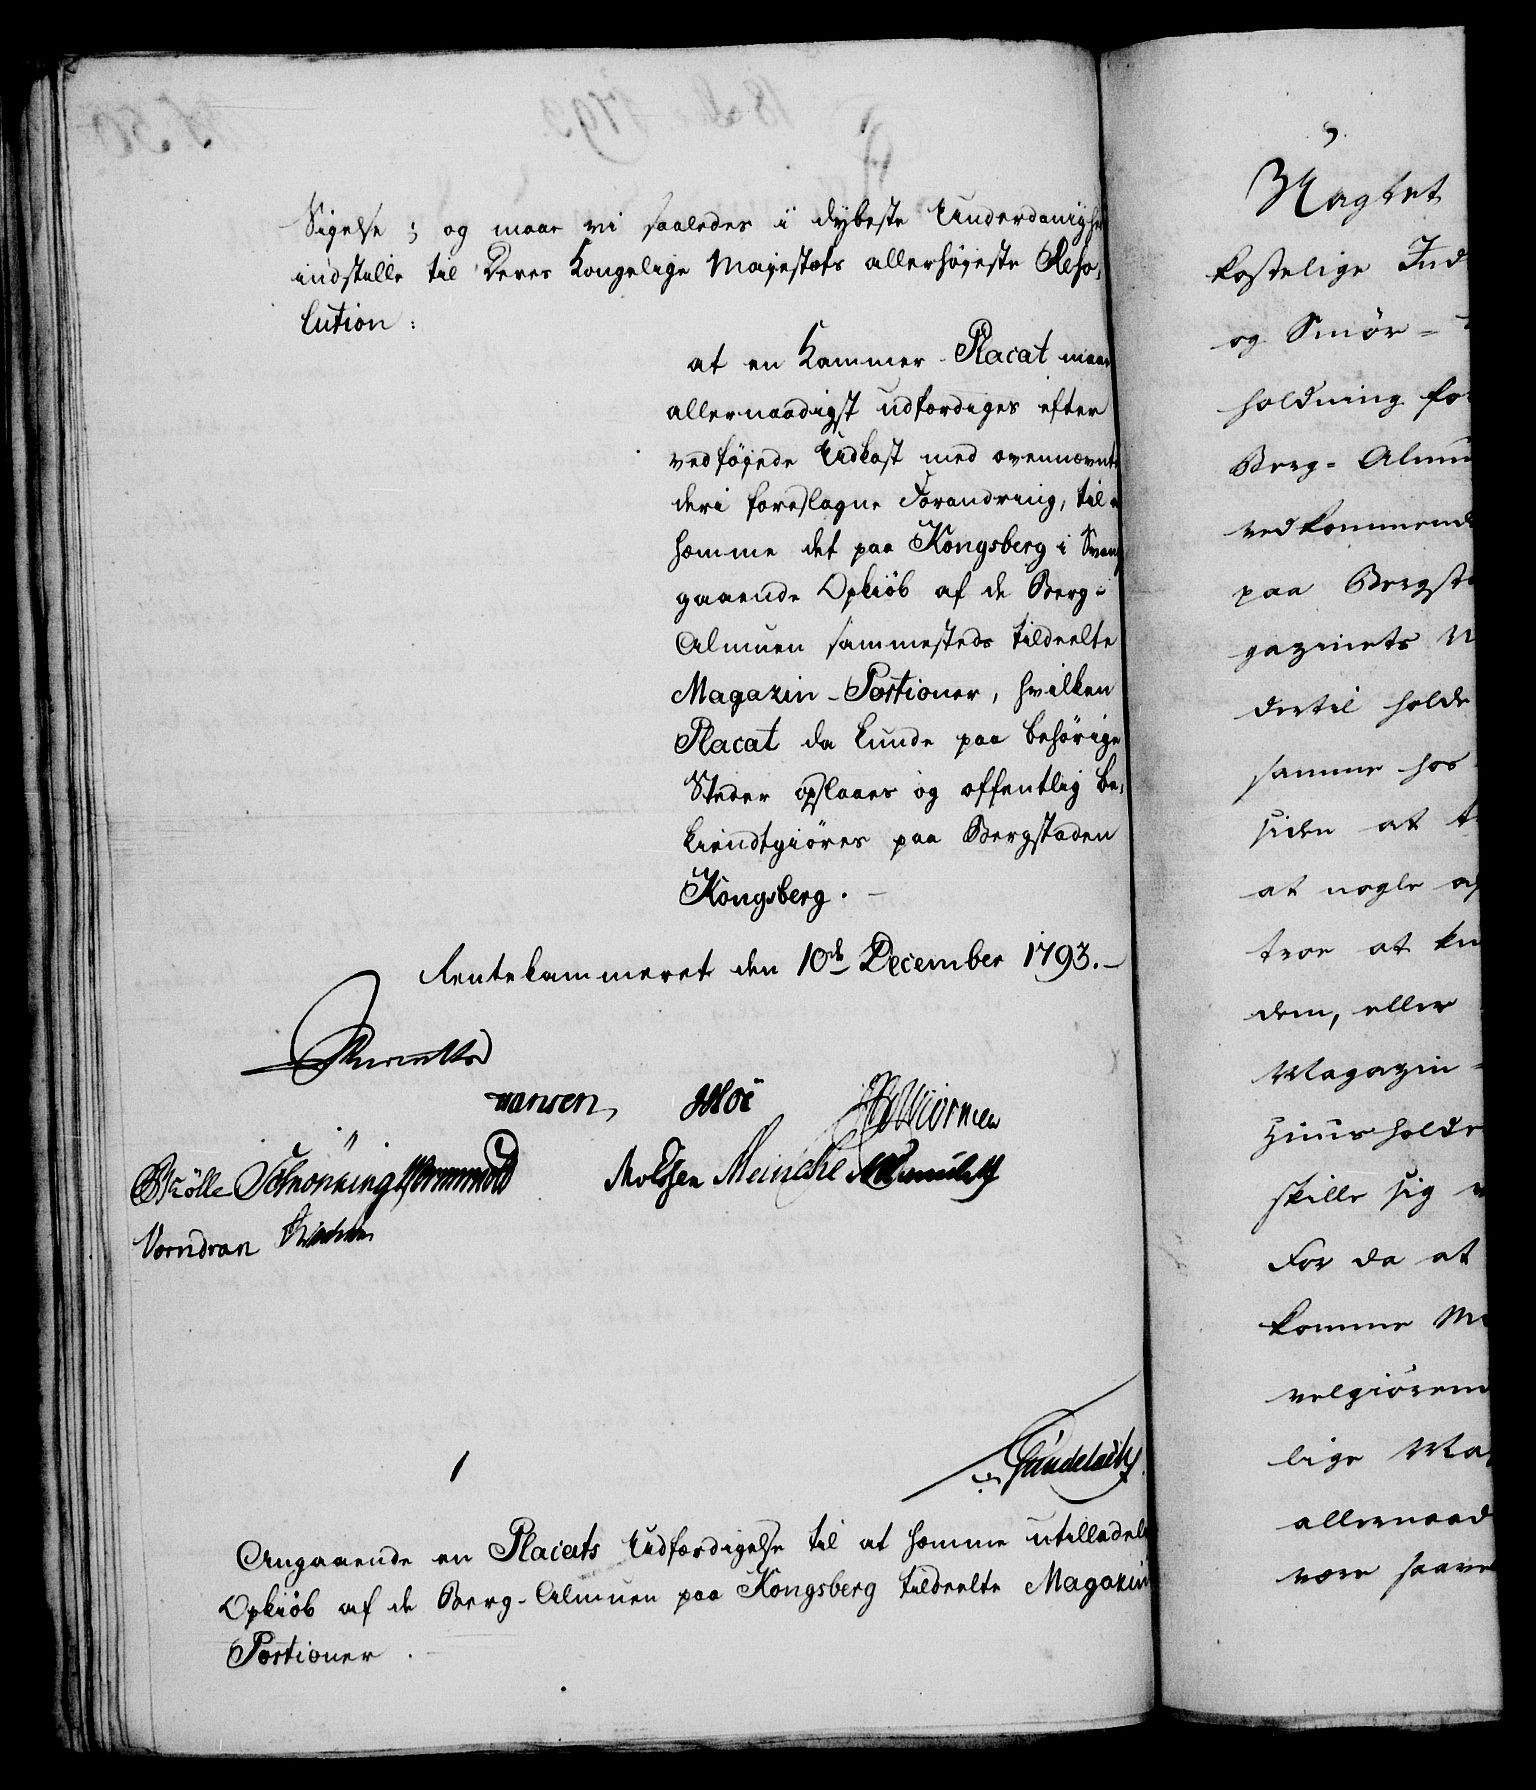 Sigelse; og maae vi saaledes i dybeste Underdanighe
indstille til Deres Kongelige Majestæts allerhøjeste Reso-
lution:
at en Kammer-Placat maae
allernaadigst udfærdiges efter
vedføjede Udkast med ovennævnte
deri foreslagne Forandring, til at
hæmme det paa Kongsberg i Svang
gaaende Opkiöb af de Berg-
Almuen sammesteds tildeelte
Magazin-Portioner, hvilken
Placat da kunde paa behörige
Steder opslaaes og offentlig be-
kiendtgiöres paa Bergstaden
Kongsberg.
Rentekammeret den 10de December 1793.
Hansen
Brölle Schrönning Wormskiold Moldsen Meincke
Vorndran
Gundelach
Angaaende en Placats Udfærdigelse til at hæmme utilladel
Opkiöb af de Berg-Almuen paa Kongsberg tildeelte Magazin
Portioner.
Magtet
kostelige Ind
og Smör-
holdning for
Berg-Almu
vedkommende
paa Bergsta
gazinets
dertil holde
samme hos
siden at
at nogle af
troe at ku
dem, eller
Magazin-
ziins holde
skille sig
For da at
komme
velgiörend
lige Ma
allernaad
være saave